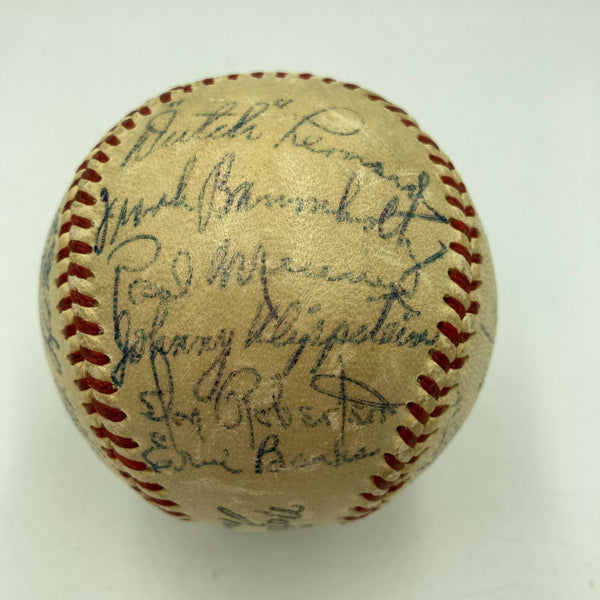 "Dutch" Leonard
Frank Baumholtz
Paul Minner
Johnny Klippstein
Robertson
Ernie Banks